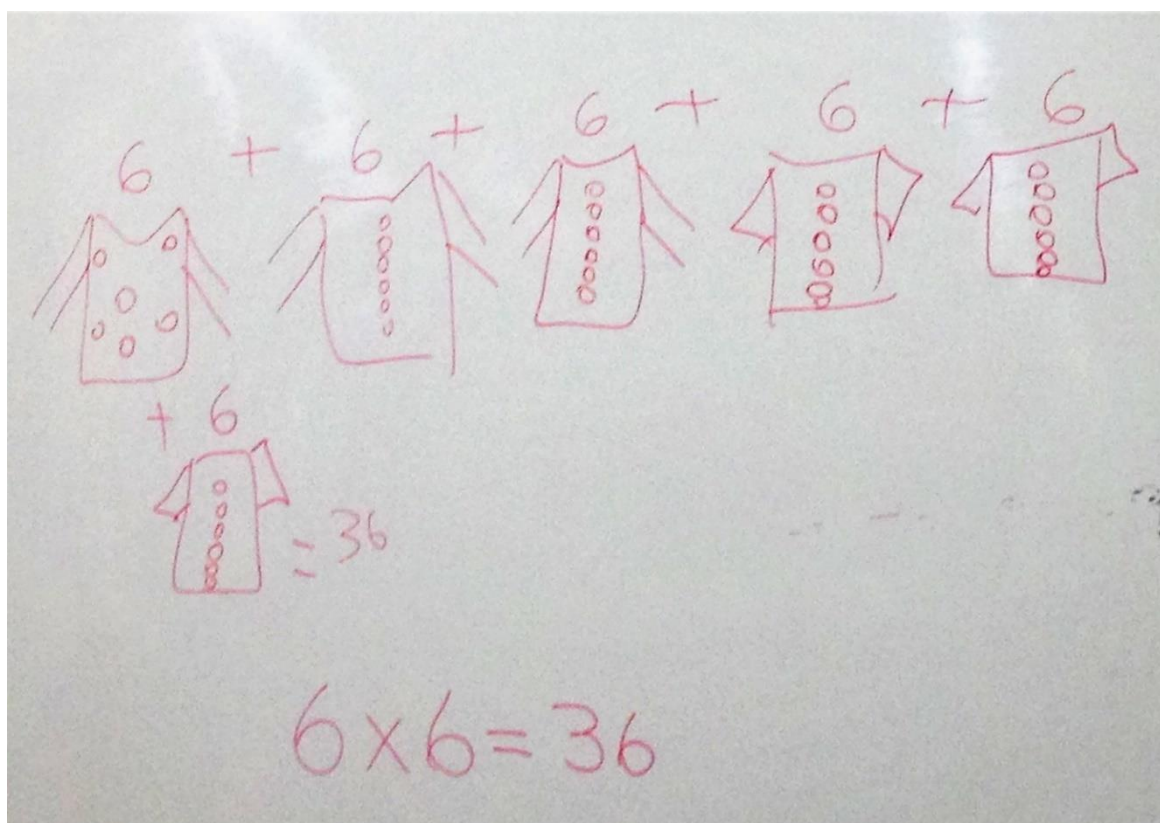 6 + 6 + 6 + 6 + 6
+ 6
= 36
6 x 6 = 36